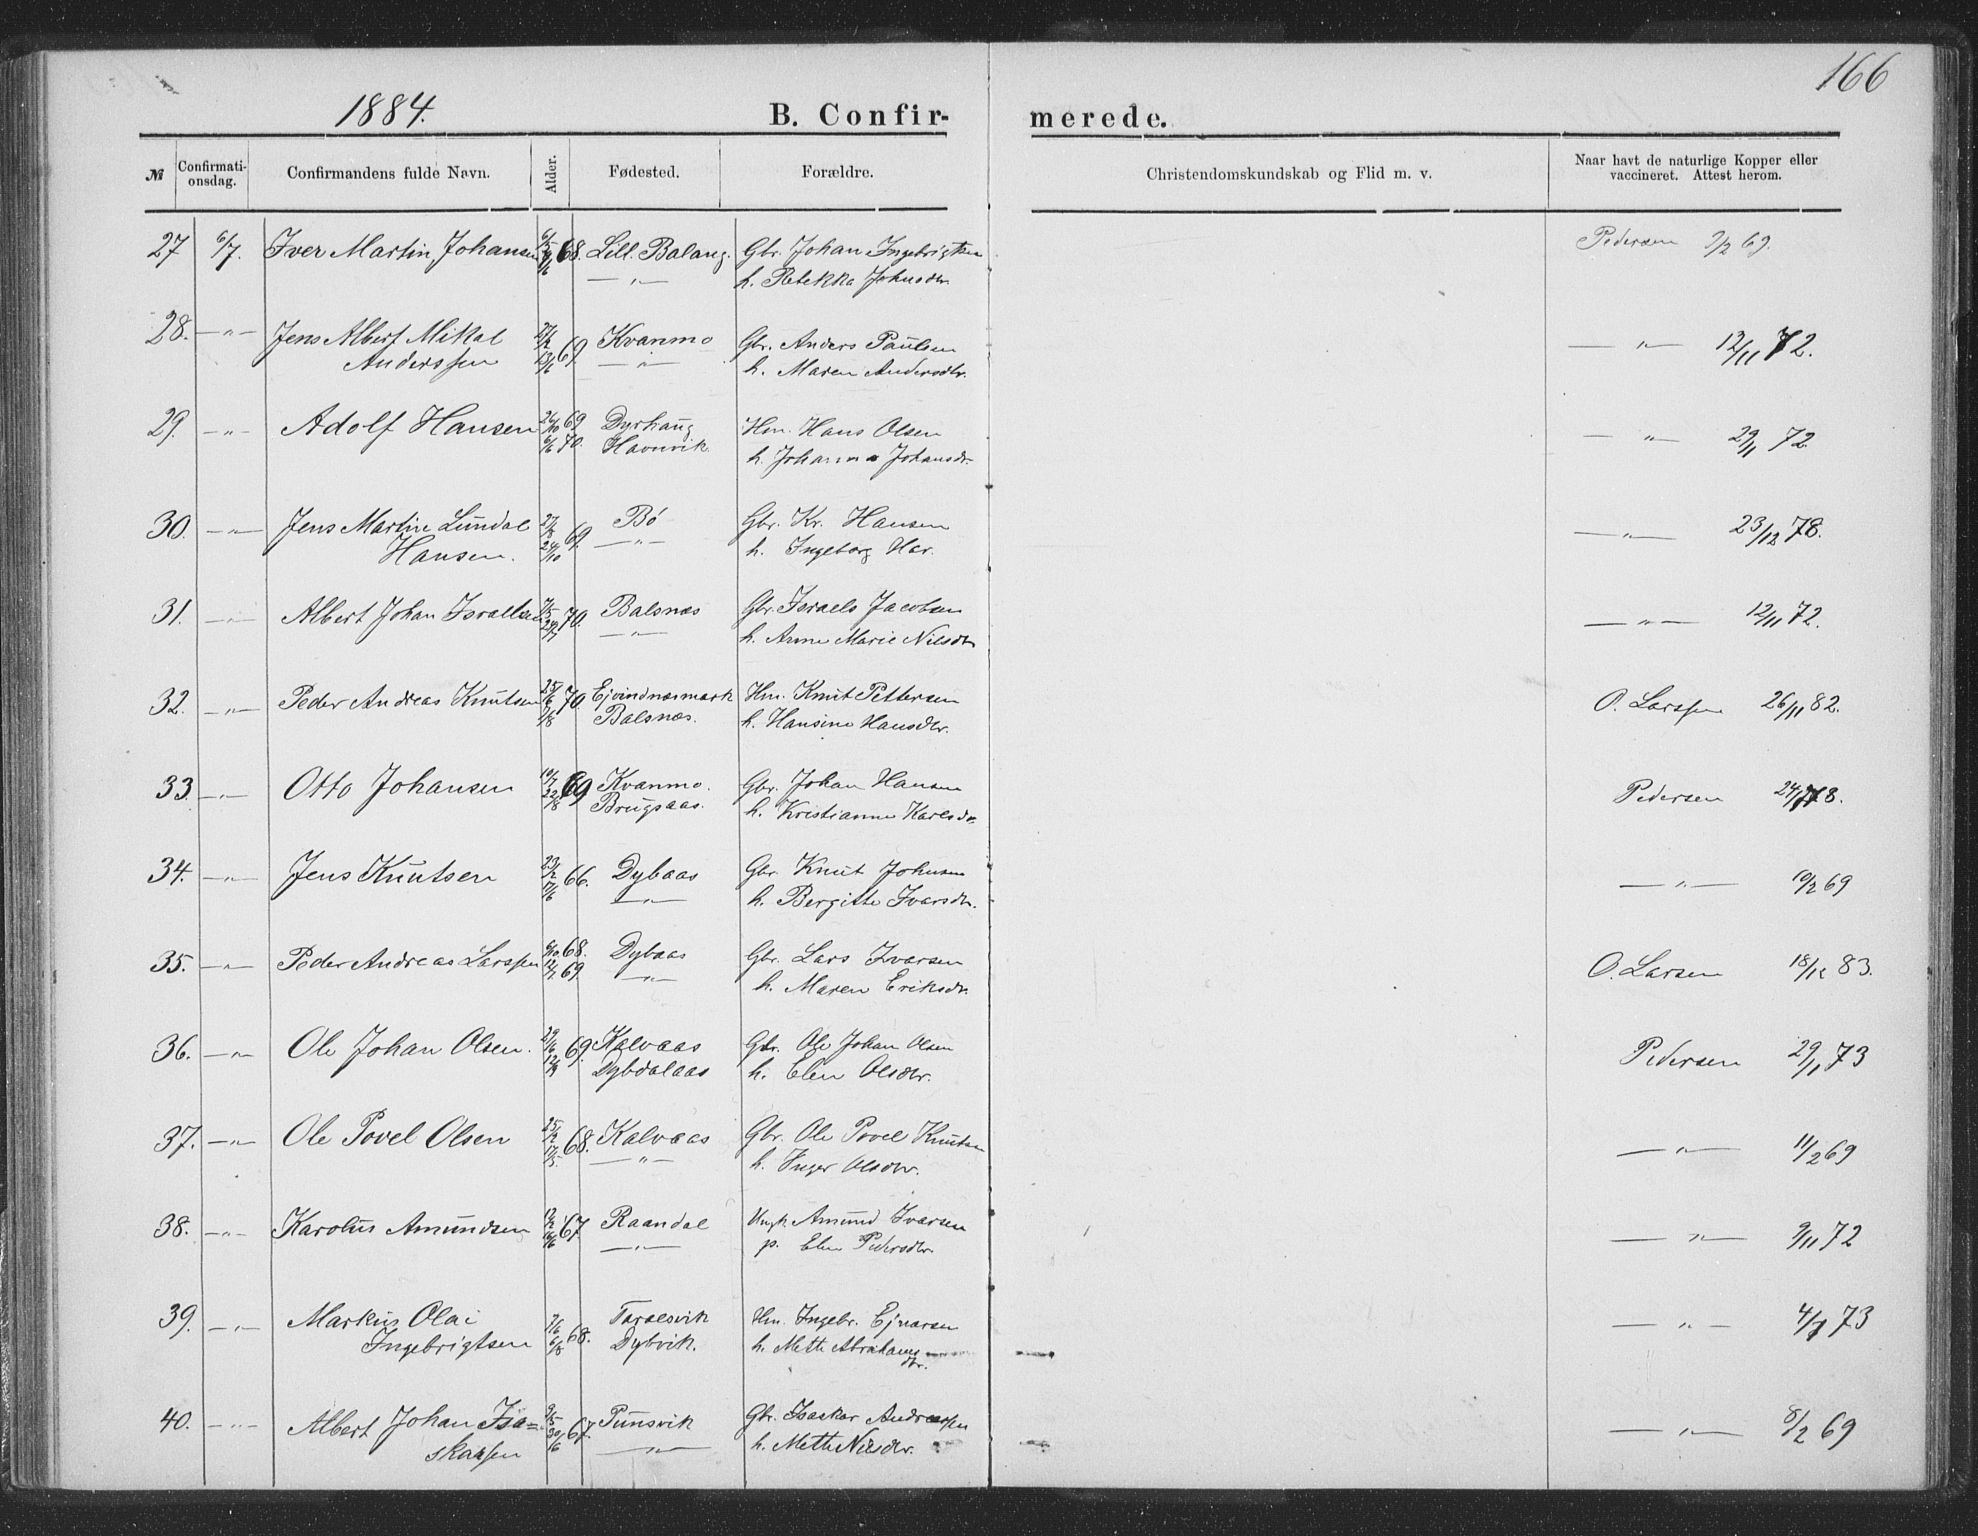 166
1884. B. Confirmerede.
№ Confirmationsdag. Confirmandens fulde Navn. Alder. Fødested. Forældre. Christendomskundskab og Flid m. v. Naar havt de naturlige Kopper eller vaccineret. Attest herom.
27 6/7. Iver Martin Johansen 68. Lill. Balang. Gbr. Johan Ingebrigtsen Pedersen 9/2 69.
—„— h. Rebekka Johnsdtr.
28. —„— Jens Albert Mikal 27/2 Kvanmo Gbr. Anders Paulsen —„— 12/11 72.
Anderssen 13/6 69. —„— h. Maren Andersdtr.
29. —„— Adolf Hansen 26/10 69 Dyrhaug Hm. Hans Olsen —„— 29/11 72
6/6 70. Havnvik h. Johanna Johansdr.
30. —„— Jens Martin Lundal 69. Bø Gbr. Kr. Hansen —„— 23/12 78.
Hansen. 24/10 —„— h. Ingeborg Har.
31. —„— Albert Johan Israelsen 7/5 70. Balsnæs Gbr. Israels Jacobsen —„— 12/11 72.
—„— h. Anne Marie Nilsdtr
32. —„— Peder Andreas Knutsen 25/6 70. Ejvindnesmark Hm. Knut Pettersen O. Larssen 26/11 82.
7/8 Balsnæs. h. Hansine Hansdtr.
33. —„— Otto Johansen 10/7 69 Kvanmo. Gbr. Johan Hansen Pedersen 78.
22/8 Brugsaas. h. Kristianne Karlsdr
34. —„— Jens Knutsen 23/2 66. Dybaas Gbr. Knut Johnsen —„— 10/2 69
17/6 —„— h. Bergitte Ivarsdtr.
35. —„— Peder Andreas Larssen 6/10 68. Dybaas Gbr. Lars Ivarsen O. Larsen 18/12 83.
69. —„— h. Maren Eriksdr.
36. —„— Ole Johan Olsen. 29/6 69. Kalvaas Gbr. Ole Johan Olsen Pedersen 29/11 73
Dybdalaas h. Elen Olsdtr.
37. —„— Ole Povel Olsen 25/2 68. Kalvaas Gbr. Ole Povel Knutsen —„— 11/2 69
17/5. —„— h. Inger Olsdtr.
38. —„— Karolus Amundsen 67 Raandal Ungk. Amund Ivarsen —„— 9/11 72
16/6 —„— p. Elen Pedersdtr.
39. —„— Markus Olai 7/6 68. Taraldsvik Hm. Ingebr. Ejnarsen —„— 73
Ingebrigtsen 6/8 Dybvik. h. Mette Abrahams
dtr.
40. —„— Albert Johan Isa= 9/5 67. Punsvik Gbr. Isaskar Andreassen —„— 8/2 69
skarsen 30/6 —„— h. Mette Nilsdtr.